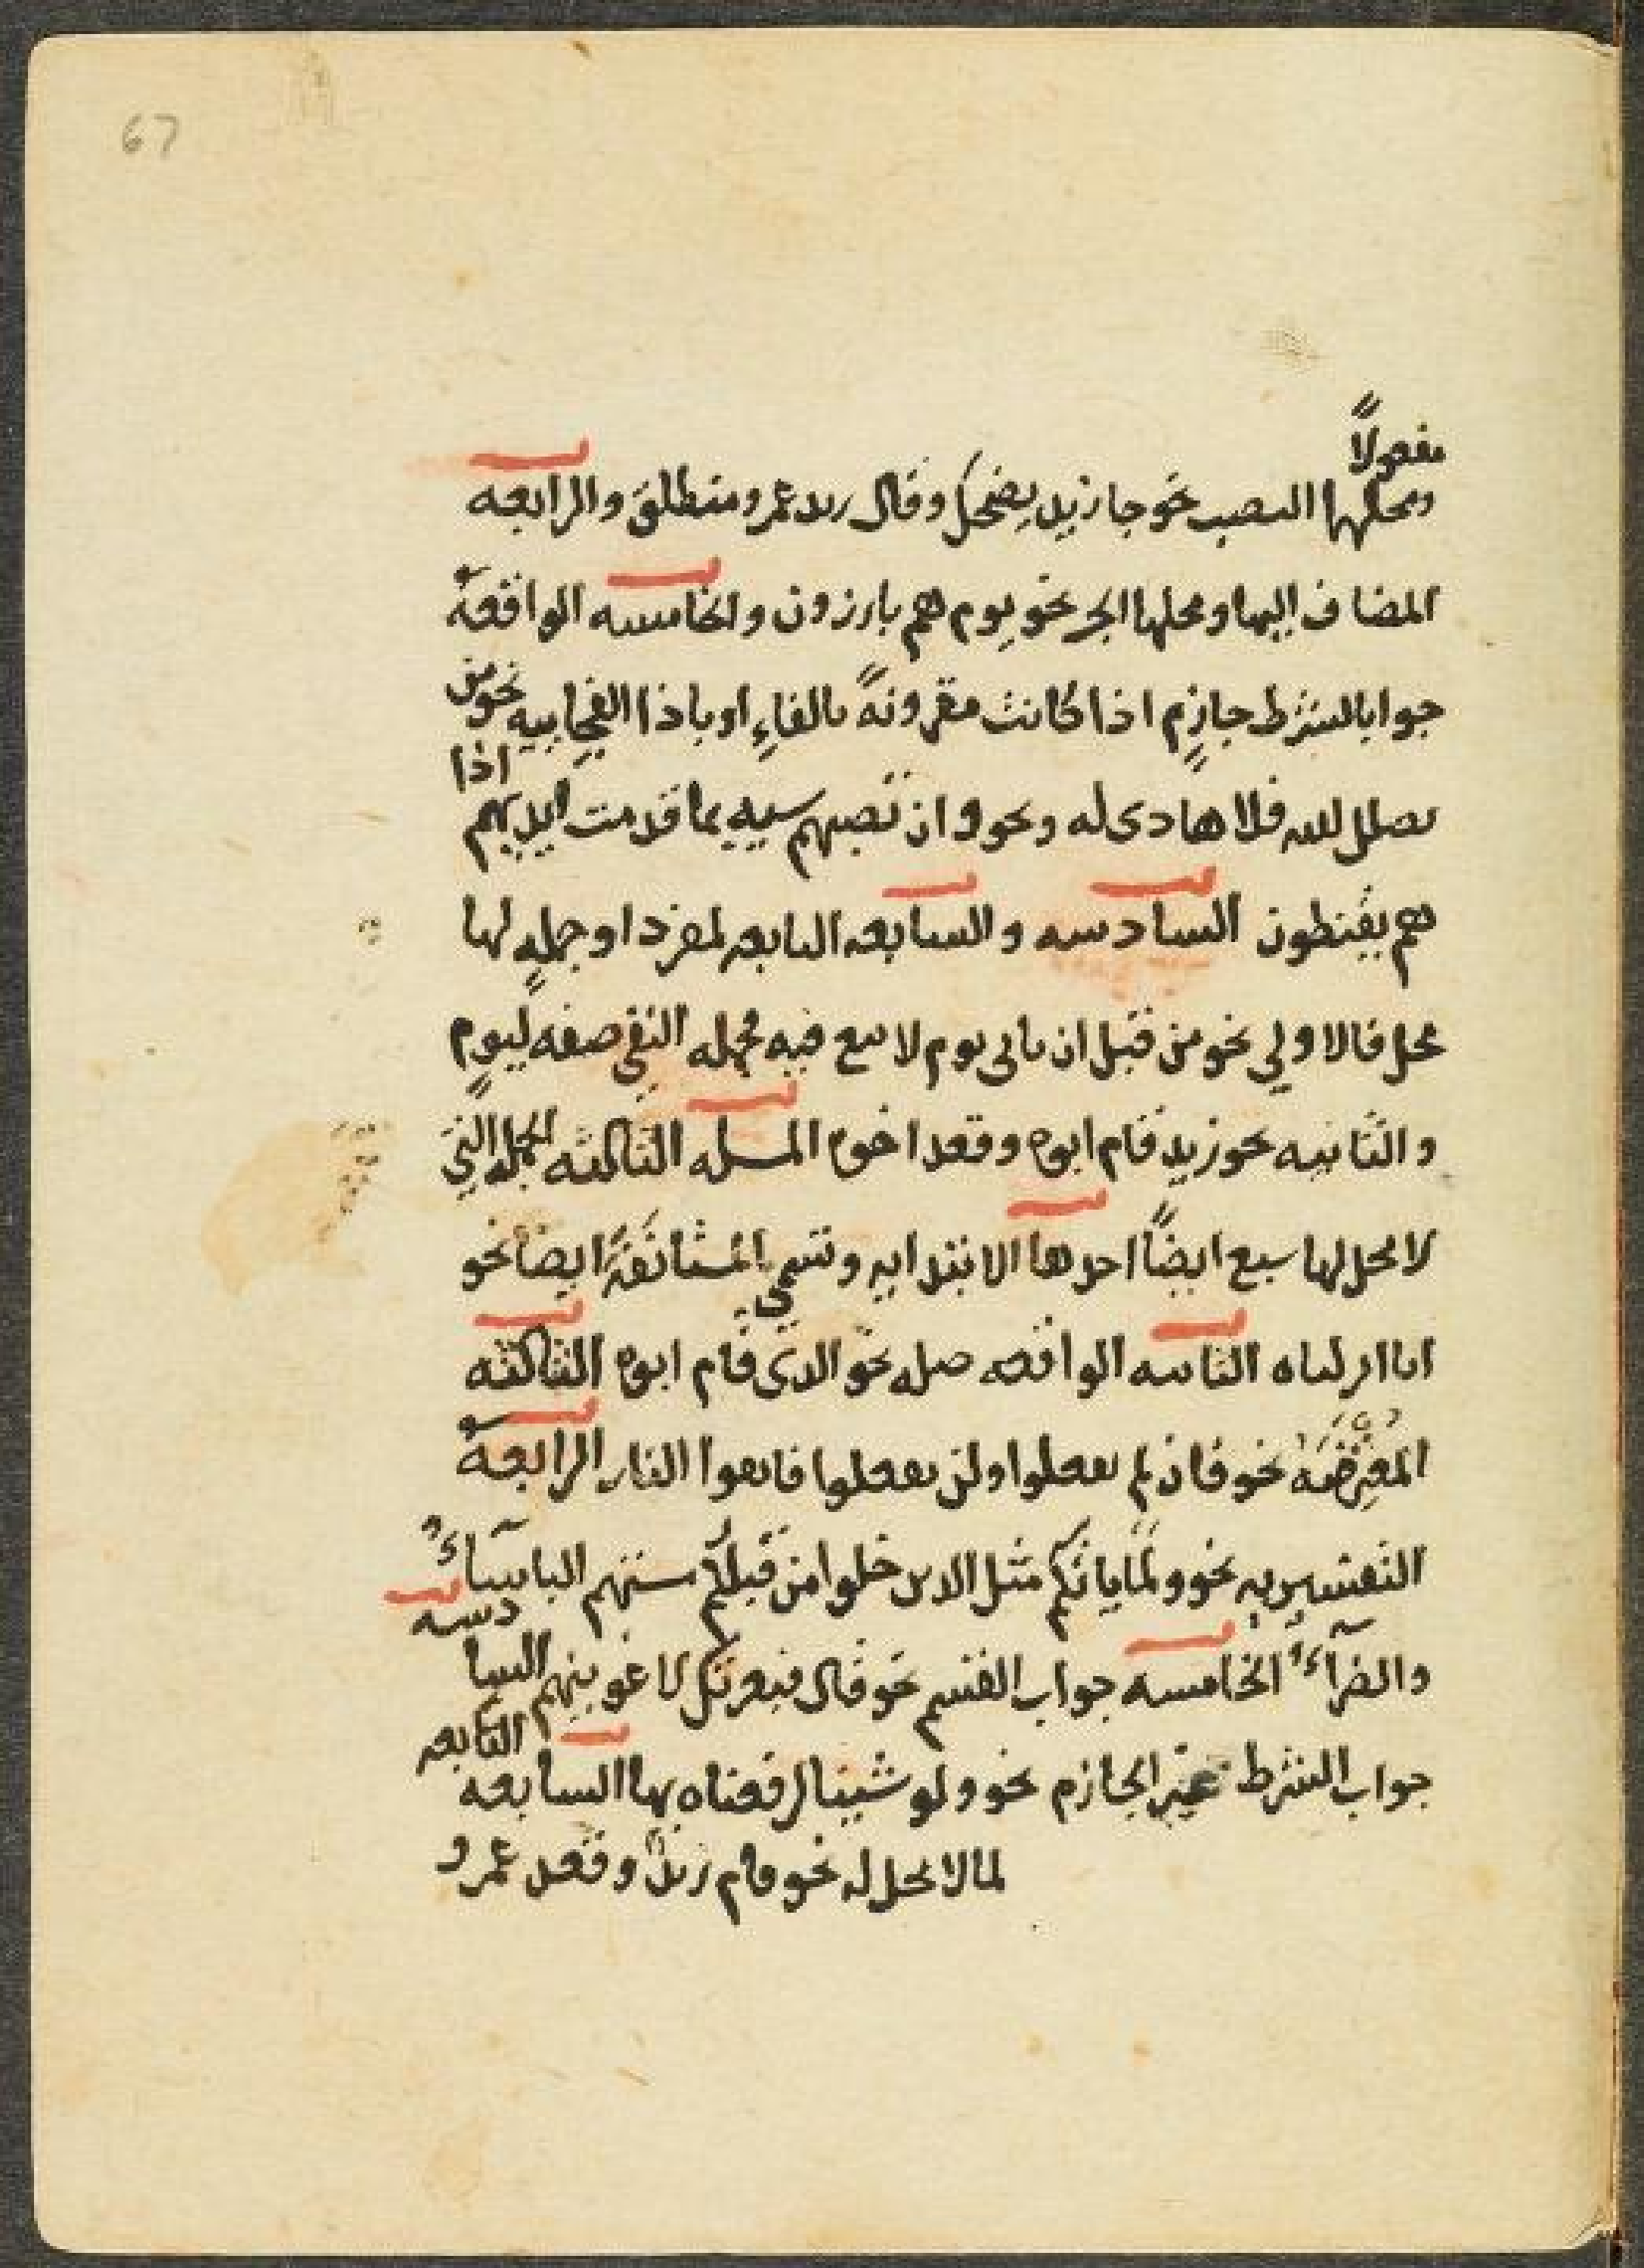 67
مفعولاً
ومحلهما النصب نحو جا زيد يضحك وقال زيد عمرو منطلق والرابعه
المضاف اليها ومحلها الجر نحو يوم هم بارزون والخامسه الواقعة
جوابا لشرط جازمٍ اذا كانت مقرونةً بالفاءِ او باذا الفجاييه نحو من
يضلل الله فلا هادى له ونحو وان تصبهم سييه بما قدمت ايديهم اذا
هم يقنطون السادسه والسابعه التابعه لمفرد او جملةٍ لها
محل فالاولي نحو من قبل ان ياتى يوم لا بيع فيه فجمله النفي صفه ليومٍ
والثانيه نحو زيد قام ابوه وقعد اخوه المسله الثالثه الجمله التي
لا محل لها سبع ايضاً احدها الابتدايه وتسمي المستانفةَ ايضا نحو
انا انزلناه الثانيه الواقعه صله نحو الدى قام ابوه الثالثه
المعترضة نحو فان لم تفعلوا ولن تفعلوا فاتقوا النار الرابعة
التفسيريه نحو ولمّا ياتكم مثل الدين خلوا من قبلكم مستهم الباسآءُ
والضرآءُ الخامسه جواب القسم نحو قال فبعزتك لاغوينهم السادسه
جواب الشرط غير الجازم نحو ولو شينا لرفعناه بها السابعه التابعه
لما لا محل له نحو قام زيدٌ وقعد عمرو